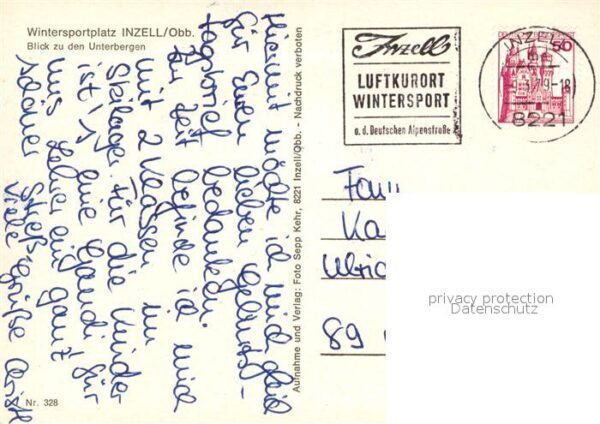 Wintersportplatz INZELL/Obb.
Blick zu den Unterbergen
Inzell
LUFTKURORT
WINTERSPORT
a. d. Deutschen Alpenstraße
50
INZELL
79-18
8221
Hiermit möchte ich mich gleich
für Euren lieben Geburts-
tagsbrief bedanken.
Zur Zeit befinde ich mich
mit 2 Klassen im
Skilager. Für die Kinder
ist eine Gaudi für
uns Lehrer ein ganz
schöner Streß.
Viele Grüße
Aufnahme und Verlag: Foto Sepp Kehr, 8221 Inzell/Obb. - Nachdruck verboten
Fam
Ka
Ulric
89
privacy protection
Datenschutz
Nr. 328